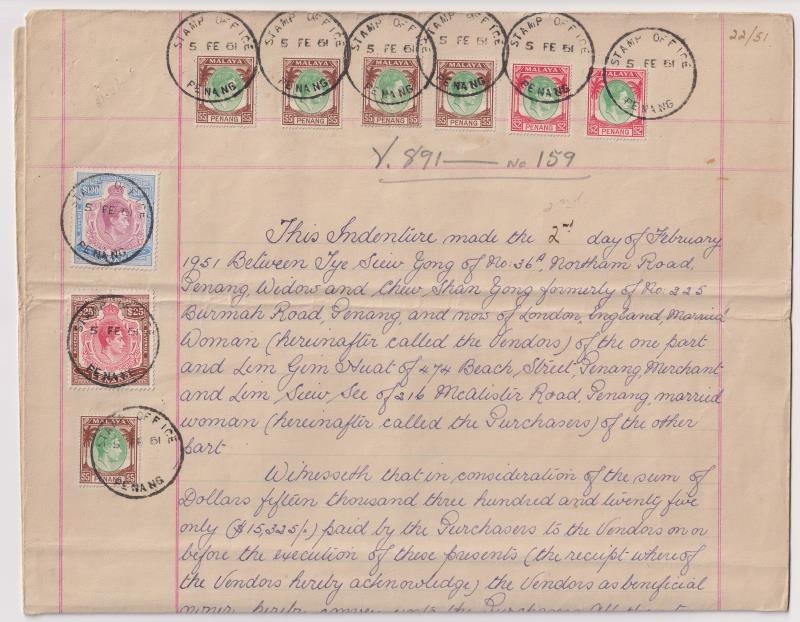 STAMP OFFICE 5 FE 61 PENANG
STAMP OFFICE 5 FE 61 PENANG
STAMP OFFICE 5 FE 61 PENANG
STAMP OFFICE 5 FE 61 PENANG
STAMP OFFICE 5 FE 61 PENANG
STAMP OFFICE 5 FE 61 PENANG
22/51
MALAYA $5 PENANG $5
MALAYA $5 PENANG $5
MALAYA $5 PENANG $5
MALAYA $5 PENANG $5
MALAYA $2 PENANG $2
MALAYA $2 PENANG $2
Y. 891 — No 159
STAMP OFFICE 5 FE 61 PENANG
$25 $25
STAMP OFFICE 5 FE 61 PENANG
MALAYA $5 PENANG
STAMP OFFICE 5 FE 61 PENANG
2nd
This Indenture made the 2nd day of February
1951 Between Tye Siew Yong of No: 36A, Northam Road,
Penang, Widow and Chew Shan Yong formerly of No: 225
Burmah Road, Penang, and now of London, England, Married
Woman (hereinafter called the Vendors) of the one part
and Lim Gim Huat of 474 Beach, Street, Penang, Merchant
and Lim Siew See of 216 McAlister Road, Penang, married
woman (hereinafter called the Purchasers) of the other
part
Witnesseth that in consideration of the sum of
Dollars fifteen thousand three hundred and twenty five
only ($15,325/-) paid by the Purchasers to the Vendors on or
before the execution of these presents (the receipt where of
the Vendors hereby acknowledge) the Vendors as beneficial
hereby convey unto the Purchasers All